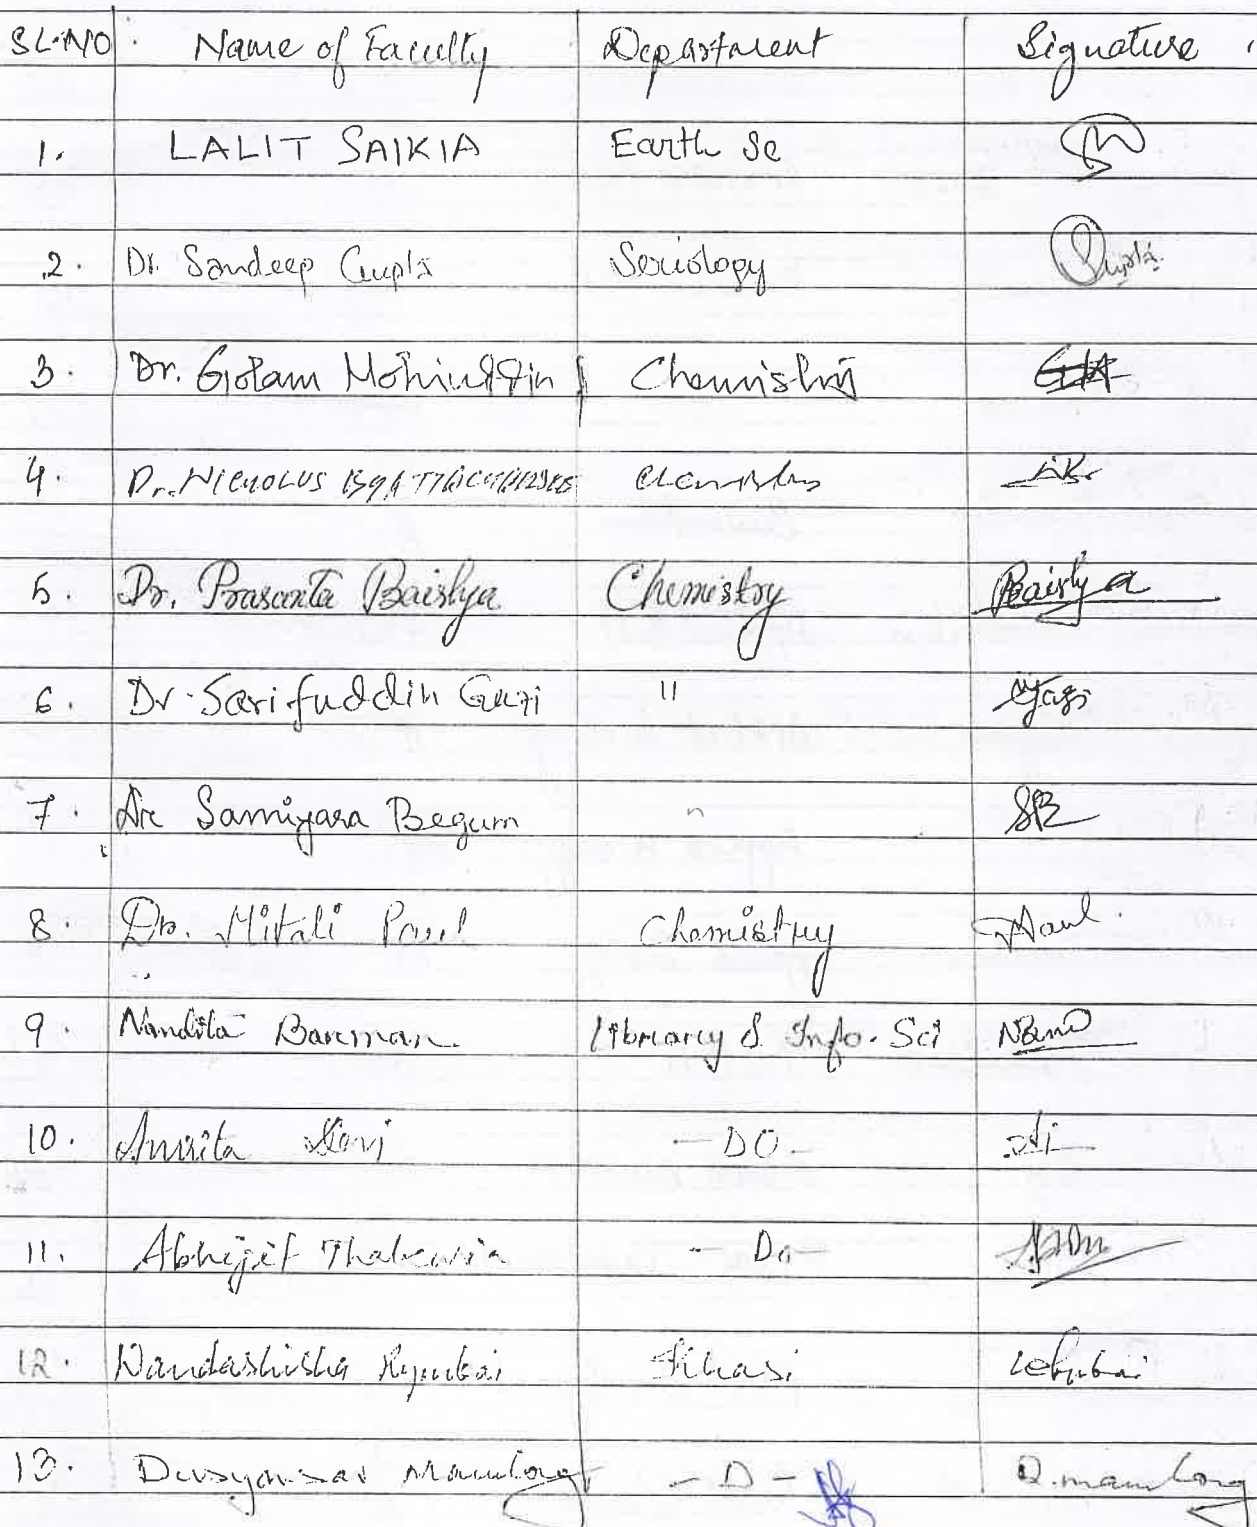 SL.NO. Name of Faculty Department Signature
1. LALIT SAIKIA Earth Sc
2. Dr. Sandeep Gupta Sociology Gupta
3. Dr. Golam Mohiuddin Chemistry
4. Dr. NICHOLUS Chemistry
5. Dr. Prasanta Baishya Chemistry Baishya
6. Dr. Sarifuddin Gazi " Gazi
7. Dr Samiyara Begum " SB
8. Dr. Mitali Paul Chemistry Paul
9. Nandita Barman Library & Info. Sci
10. Amrita Devi - DO -
11. Abhijit Thakuria - Do -
12. Wandashisha Rynbai Khasi
13. Mawlong - D - D. mawlong